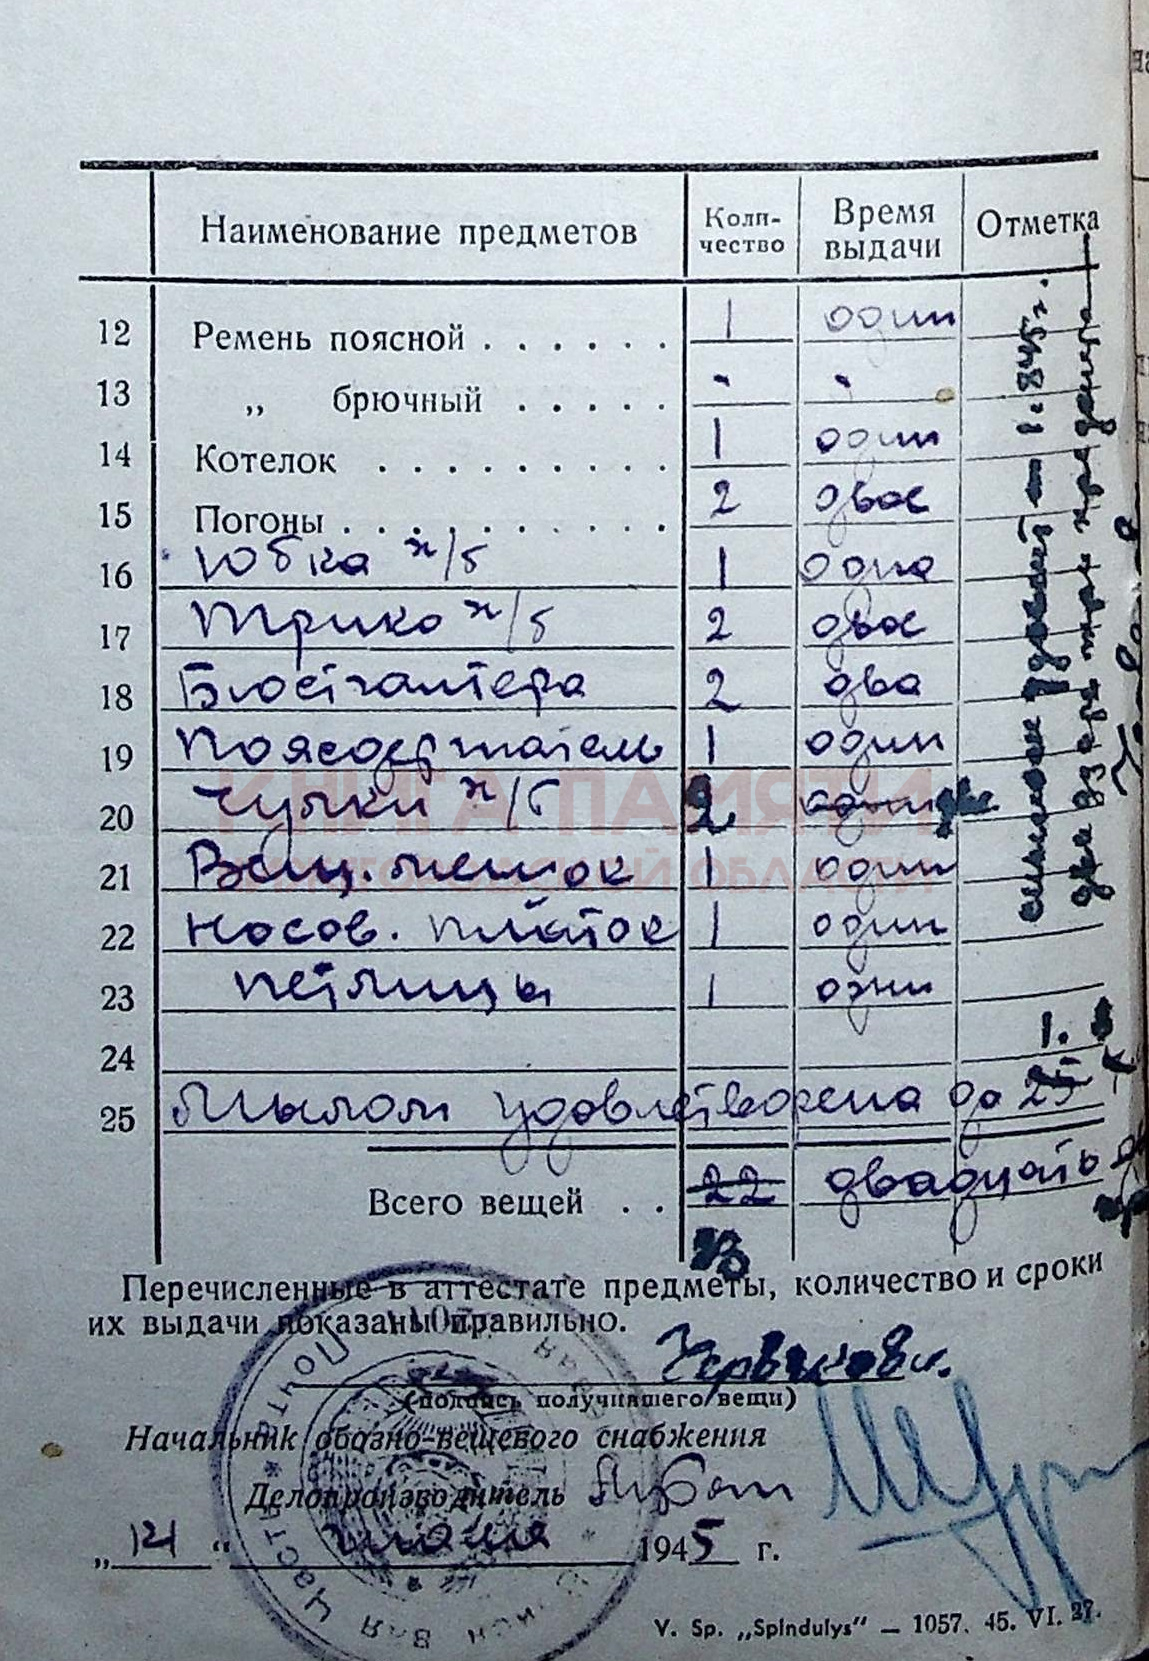 Наименование предметов Коли-чество Время выдачи Отметка
12 Ремень поясной . . . . . . 1 один
13 „ брючный . . . . . - -
14 Котелок . . . . . . . . . 1 один
15 Погоны . . . . . . . . . . 2 двое
16 Юбка х/б 1 одна
17 Трико х/б 2 двое
18 Бюстгалтера 2 два
19 Поясодержатель 1 один
20 Чулки х/б 2 две
21 Вещ. мешок 1 один
22 Носов. платок 1 один
23 петлицы 1 одни
24 1.
25 Мылом удовлетворена до
Всего вещей . . 22 двадцать
23
1.8.45г.
две
КНИГА ПАМЯТИ
НИЖЕГОРОДСКОЙ ОБЛАСТИ
Перечисленные в аттестате предметы, количество и сроки
их выдачи показаны правильно.
Червякова.
(подпись получившего вещи)
Начальник обозно-вещевого снабжения
Делопроизводитель
„14“ июля 1945 г.
V. Sp. „Spindulys“ — 1057. 45. VI. 27.